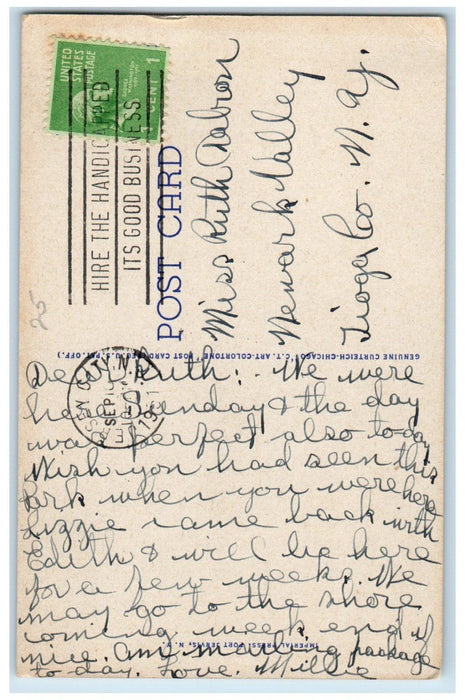 UNITED
STATES
POSTAGE
1 CENT 1
HIRE THE HANDICAPPED
ITS GOOD BUSINESS
POST CARD
Miss Ruth
Newark Valley
Tioga Co. N. Y.
25
GENUINE CURTEICH-CHICAGO "C.T. ART-COLORTONE" POST CARD (REG. U.S. PAT. OFF.)
JERSEY CITY, N.J.
SEP
1951
Dear Ruth: We were
here Sunday & the day
was perfect also to-day
Wish you had seen this
Park when you were here
Lizzie came back with
Edith & will be here
for a few weeks. We
may go to the shore
coming week end if
nice. Am mailing package
to day. Love. Millie